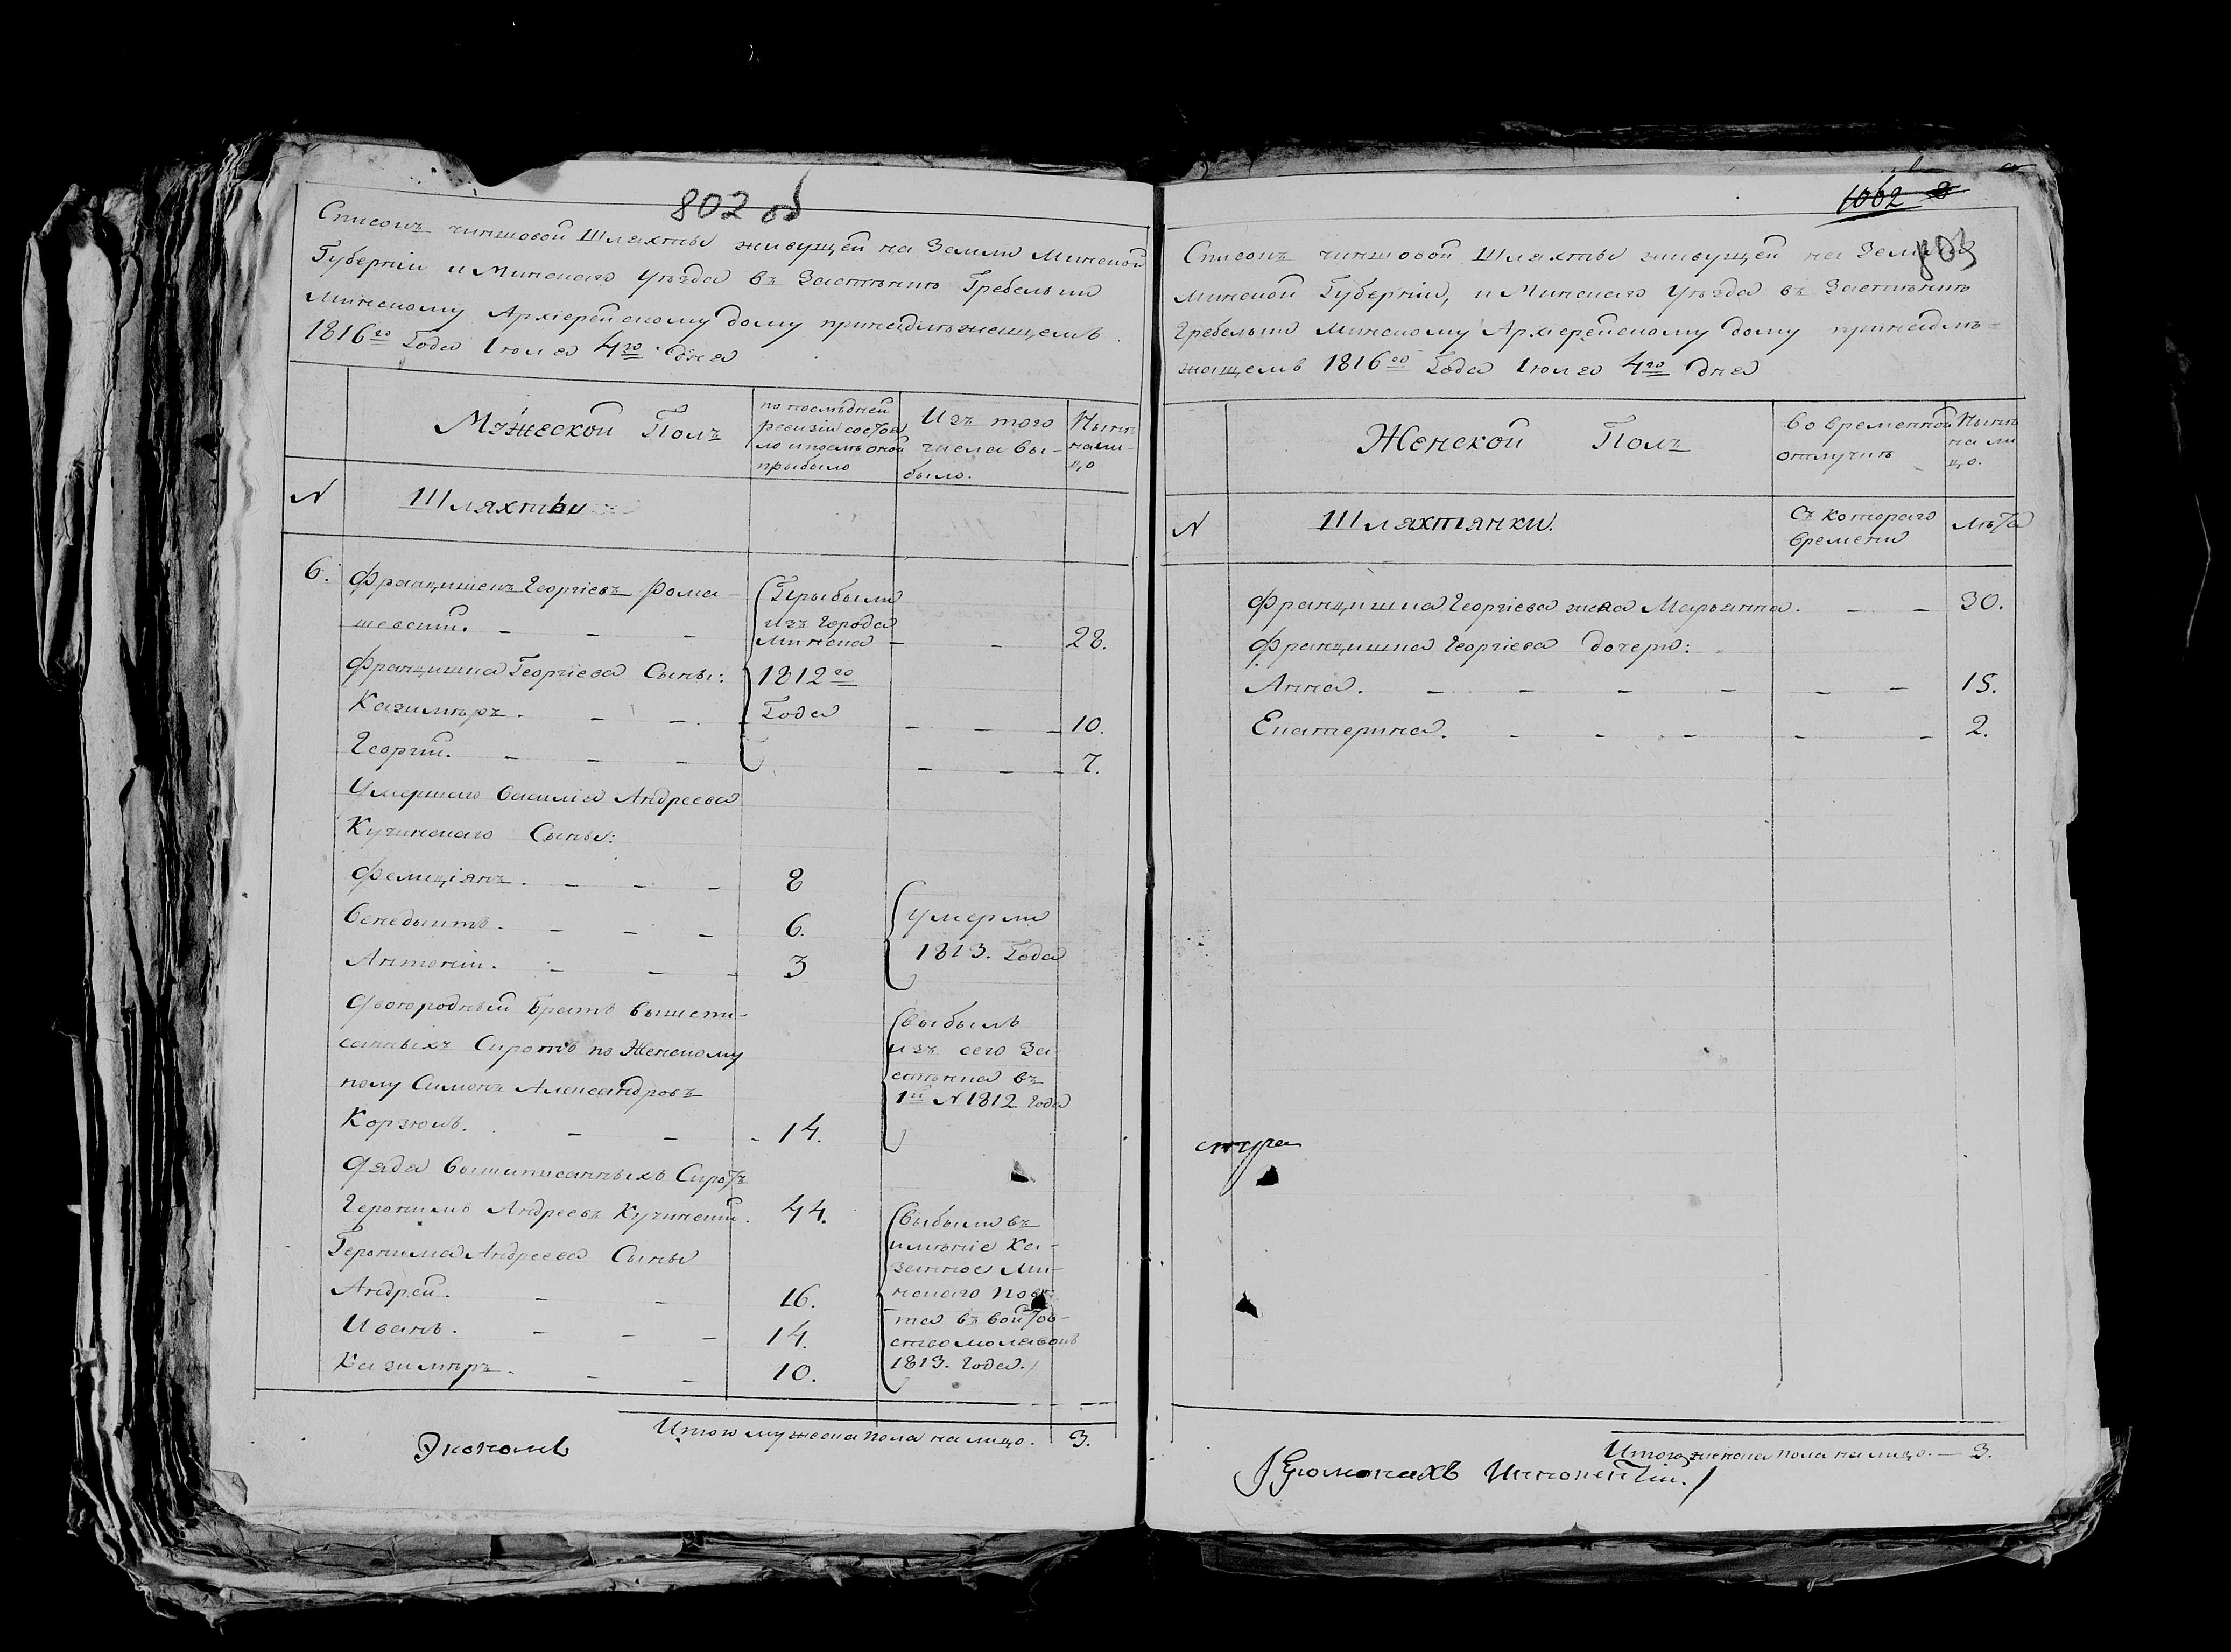 802 об
Списокъ чиншовой Шляхты живущей на Земли Минской
Губерніи и Минскаго Уѣзда въ Застѣнкѣ Гребельки
Минскому Архіерейскому дому принадлѣжащемъ
1816го Года Іюля 4го дня
Мужеской Полъ
по послѣдней
ревизіи состоя
ло и послѣ оной
прибыло
Изъ того
числа вы-
было.
Нынѣ
на ли-
цо
N
Шляхтычи
6. Францишекъ Георгіевъ Рома-
шевскій. 28.
Прибыли
изъ Города
Минска
1812го
Года
Францишка Георгіева Сыны:
Казимѣръ. 10.
Георгій. 7.
Умершаго Василія Андреева
Кучинскаго Сыны:
Фелиціянъ. 8
Бенедыктъ. 6.
Антоній. 3
Умерли
1813. Года
Двоюродный Братъ вышепи-
санныхъ Сиротъ по Женскому
полу Симонъ Александровъ
Корзюкъ. 14.
Выбылъ
изъ сего За-
стѣнка въ
1й N 1812 Года
Дядя вышеписанныхъ Сиротъ
Геронимъ Андреевъ Кучинскій. 44.
Геронима Андреева Сыны
Андрей. 16.
Иванъ. 14.
Казимѣръ. 10.
Выбыли въ
имѣніе Ка-
зенное Ми-
нскаго Пове-
та въ войтов-
ство
1813. Года.
Итого мужеска пола на лицо. 3.
Экономъ
1062
803
Списокъ чиншовой Шляхты живущей на Земли
Минской Губерніи, и Минскаго Уѣзда въ Застѣнкѣ
Гребелькѣ Минскому Архіерейскому дому принадлѣ-
жащемъ 1816го Года Іюля 4го дня
Женской Полъ
Во временной
отлучкѣ
Нынѣ
на ли
цо.
N
Шляхтянки.
Съ котораго
времени
Лѣта
Францишка Георгіева жена Марьянна. 30.
Францишка Георгіева дочери:
Анна. 15.
Екатерина. 2.
Итого женска пола на лицо. 3.
Іеромонахъ Иннокентій.